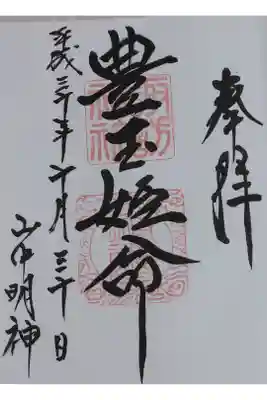 奉拝
豊玉姫命
平成三十年十月三十日
山中明神